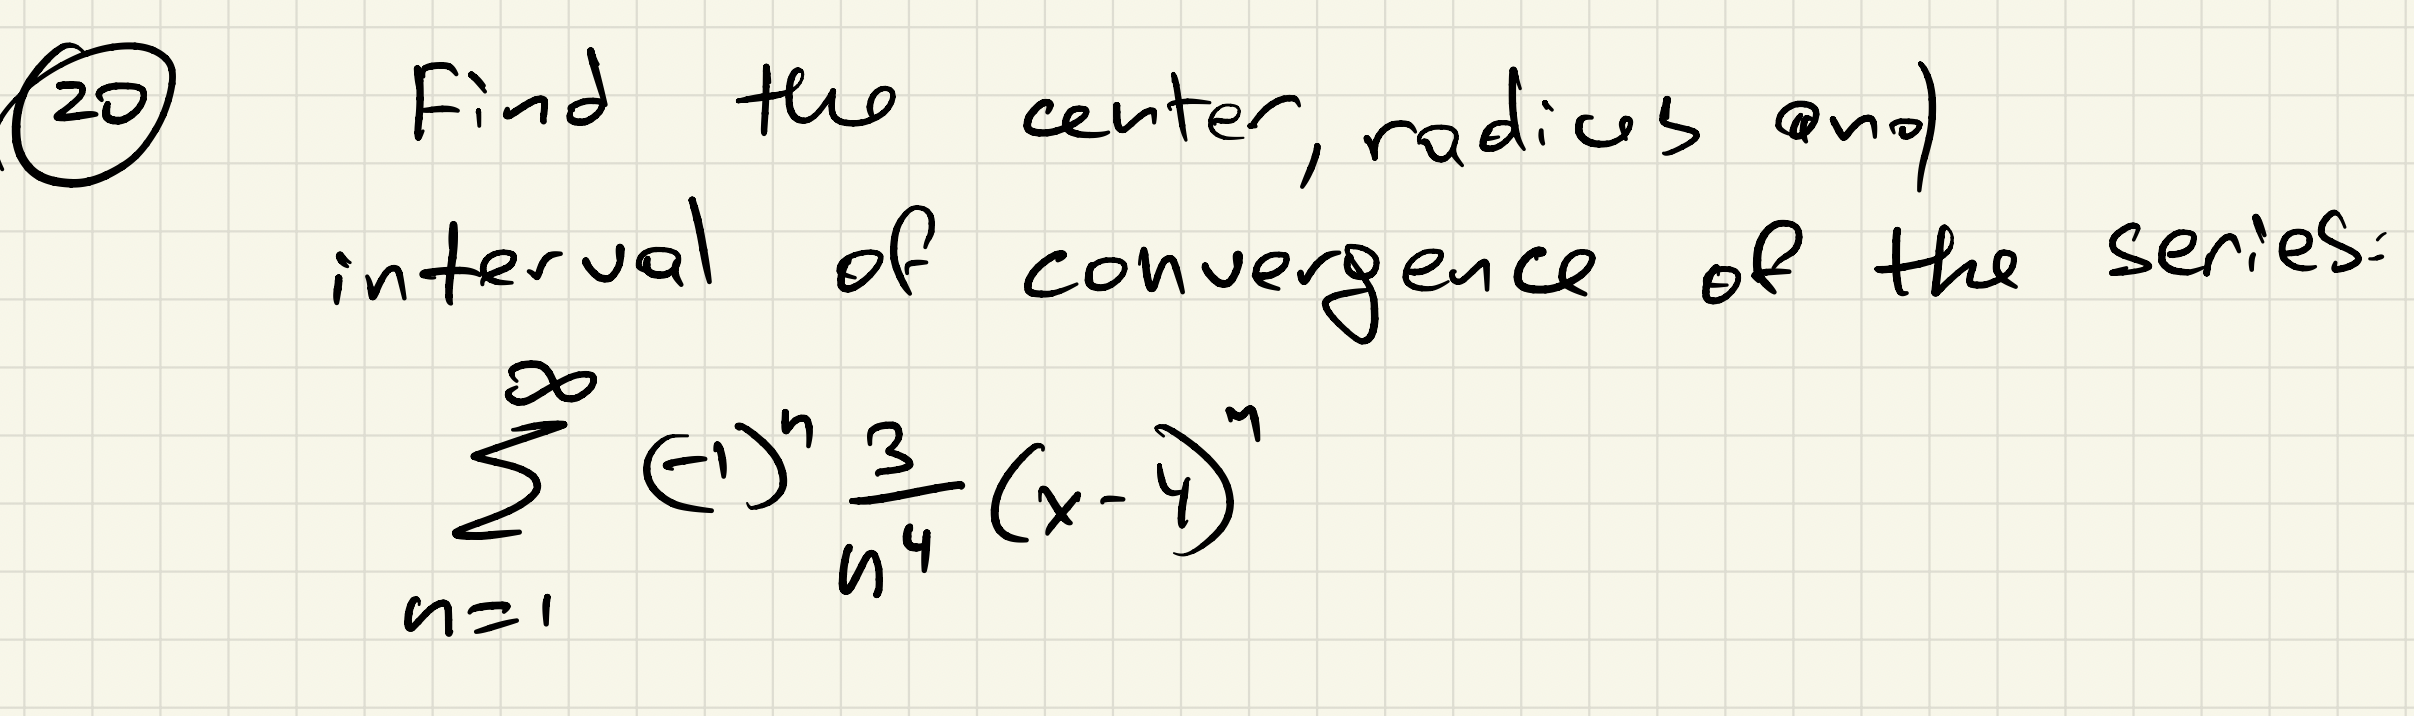 20 Find the center, radius and
interval of convergence of the series:
∞
∑ (-1)^n 3/n^4 (x-4)^n
n=1